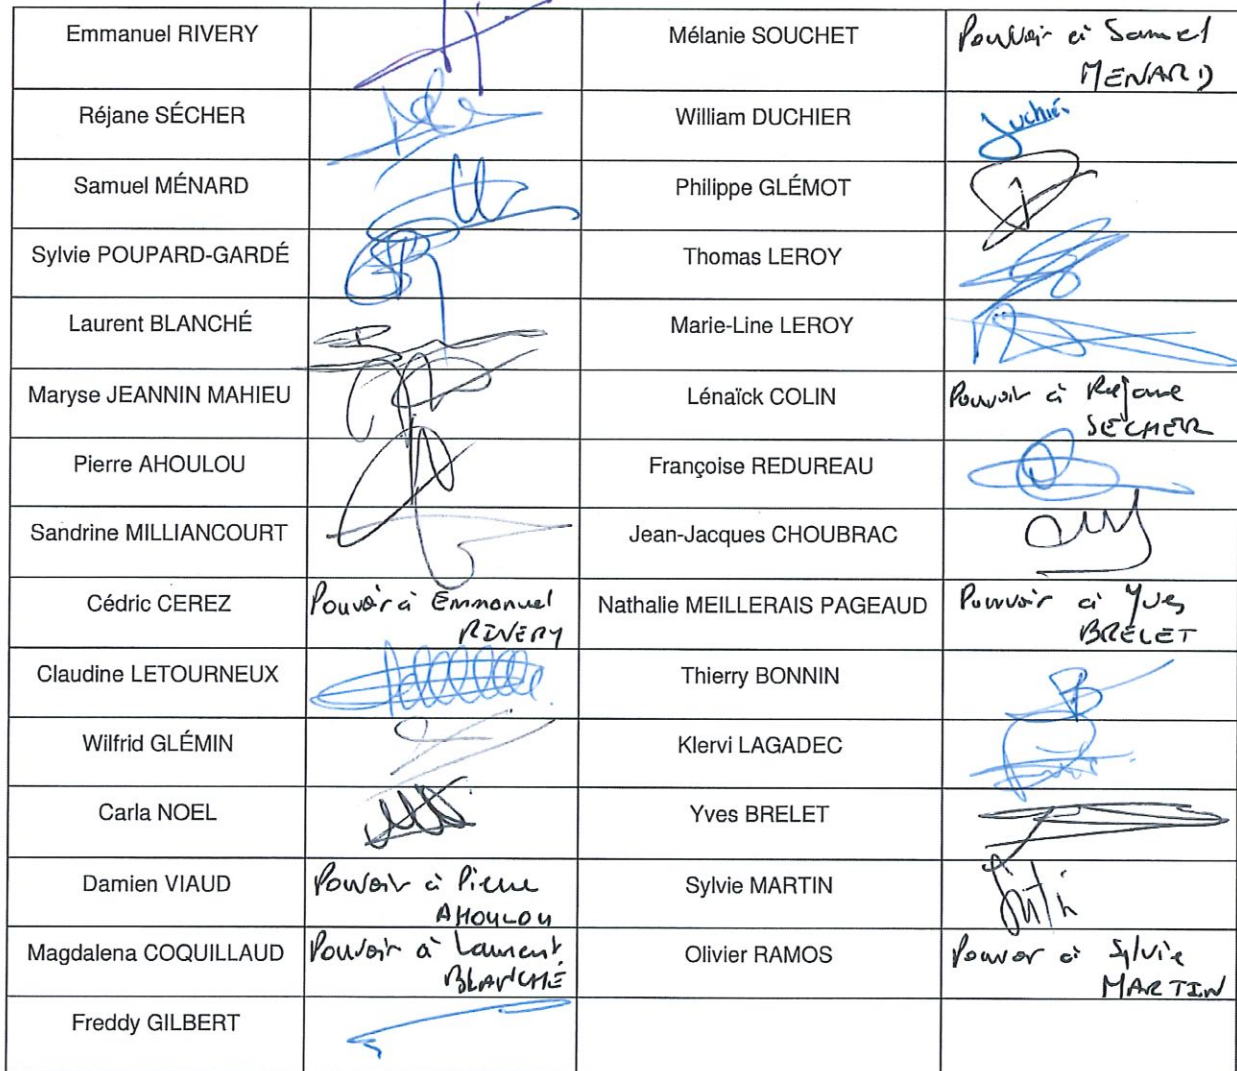 Emmanuel RIVERY
Mélanie SOUCHET
Pouvoir à Samuel
MENARD
Réjane SÉCHER
William DUCHIER
Samuel MÉNARD
Philippe GLÉMOT
Sylvie POUPARD-GARDÉ
Thomas LEROY
Laurent BLANCHÉ
Marie-Line LEROY
Maryse JEANNIN MAHIEU
Lénaïck COLIN
Pouvoir à Rejane
SECHER
Pierre AHOULOU
Françoise REDUREAU
Sandrine MILLIANCOURT
Jean-Jacques CHOUBRAC
Cédric CEREZ
Pouvoir à Emmanuel
RIVERY
Nathalie MEILLERAIS PAGEAUD
Pouvoir à Yves
BRELET
Claudine LETOURNEUX
Thierry BONNIN
Wilfrid GLÉMIN
Klervi LAGADEC
Carla NOEL
Yves BRELET
Damien VIAUD
Pouvoir à Pierre
AHOULOU
Sylvie MARTIN
Magdalena COQUILLAUD
Pouvoir à Laurent
BLANCHÉ
Olivier RAMOS
Pouvor à Sylvie
MARTIN
Freddy GILBERT